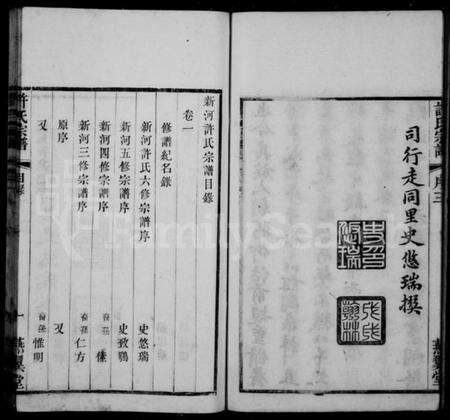 許氏宗譜
序三
司行走同里史悠瑞撰
新河許氏宗譜目錄
卷一
修譜紀名錄
新河許氏六修宗譜序 史悠瑞
新河五修宗譜序 史致鶚
新河四修宗譜序
新河三修宗譜序 仁方
原序 又
又 惟明
許氏宗譜
目錄
一
FamilySearch